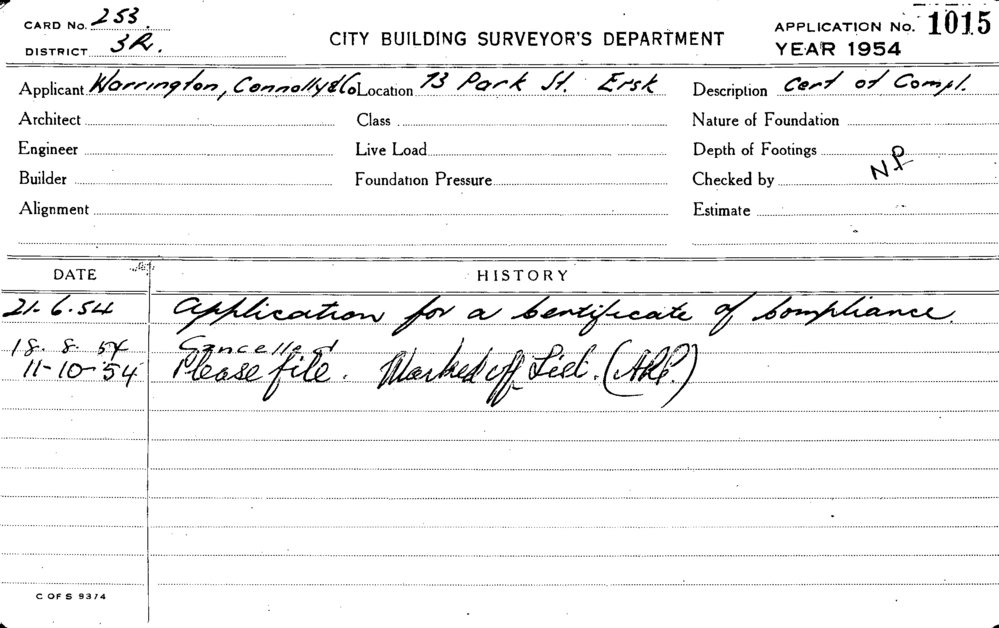 CARD No. 253.
DISTRICT SR.
CITY BUILDING SURVEYOR'S DEPARTMENT
APPLICATION No. 1015
YEAR 1954
Applicant Warrington, Connolly & Co Location 73 Park St. Ersk Description Cert of Compl.
Architect Class Nature of Foundation
Engineer Live Load Depth of Footings
Builder Foundation Pressure Checked by NP
Alignment Estimate
DATE HISTORY
21.6.54 Application for a Certificate of Compliance.
18.8.54 Cancelled
11-10-54 Please file. Marked off List.
C OF S 93/4